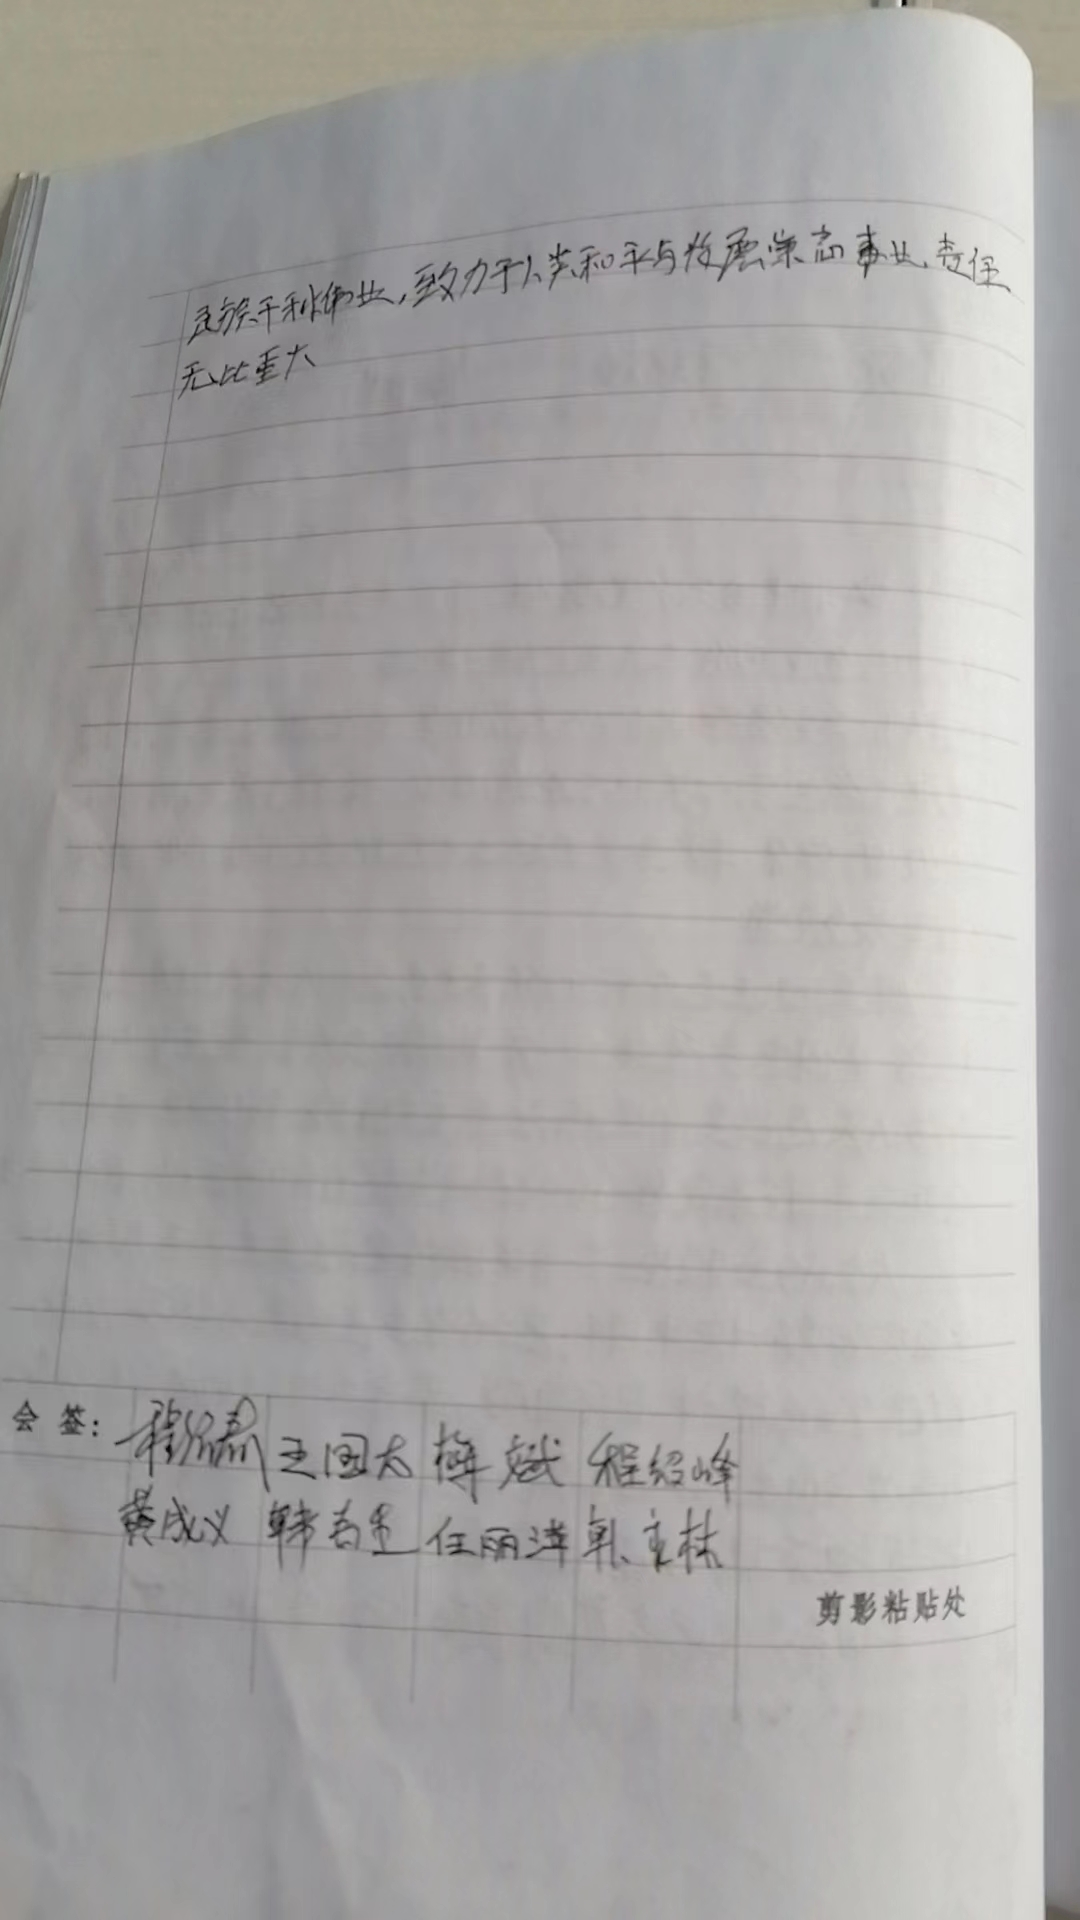 民族千秋伟业,致力于人类和平与发展崇高事业,责任
无比重大
会 签: 王国太 斌 程绍峰
黄成义 韩春 任丽洋
剪影粘贴处